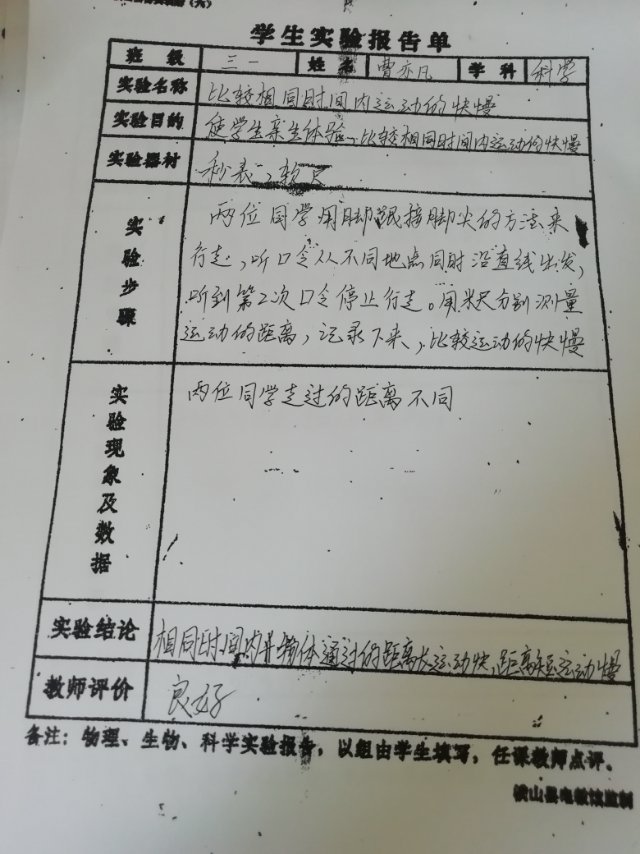 学生实验报告单
班级 三一 姓名 曹亦凡 学科 科学
实验名称 比较相同时间内运动的快慢
实验目的 使学生亲生体验、比较相同时间内运动的快慢
实验器材 秒表、软尺
实验步骤 两位同学用脚跟接脚尖的方法来
行走,听口令从不同地点同时沿直线出发,
听到第2次口令停止行走。用米尺分别测量
运动的距离,记录下来,比较运动的快慢
实验现象及数据 两位同学走过的距离不同
实验结论 相同时间内物体通过的距离长运动快,距离短运动慢
教师评价 良好
备注:物理、生物、科学实验报告,以组由学生填写,任课教师点评。
横山县电教馆监制